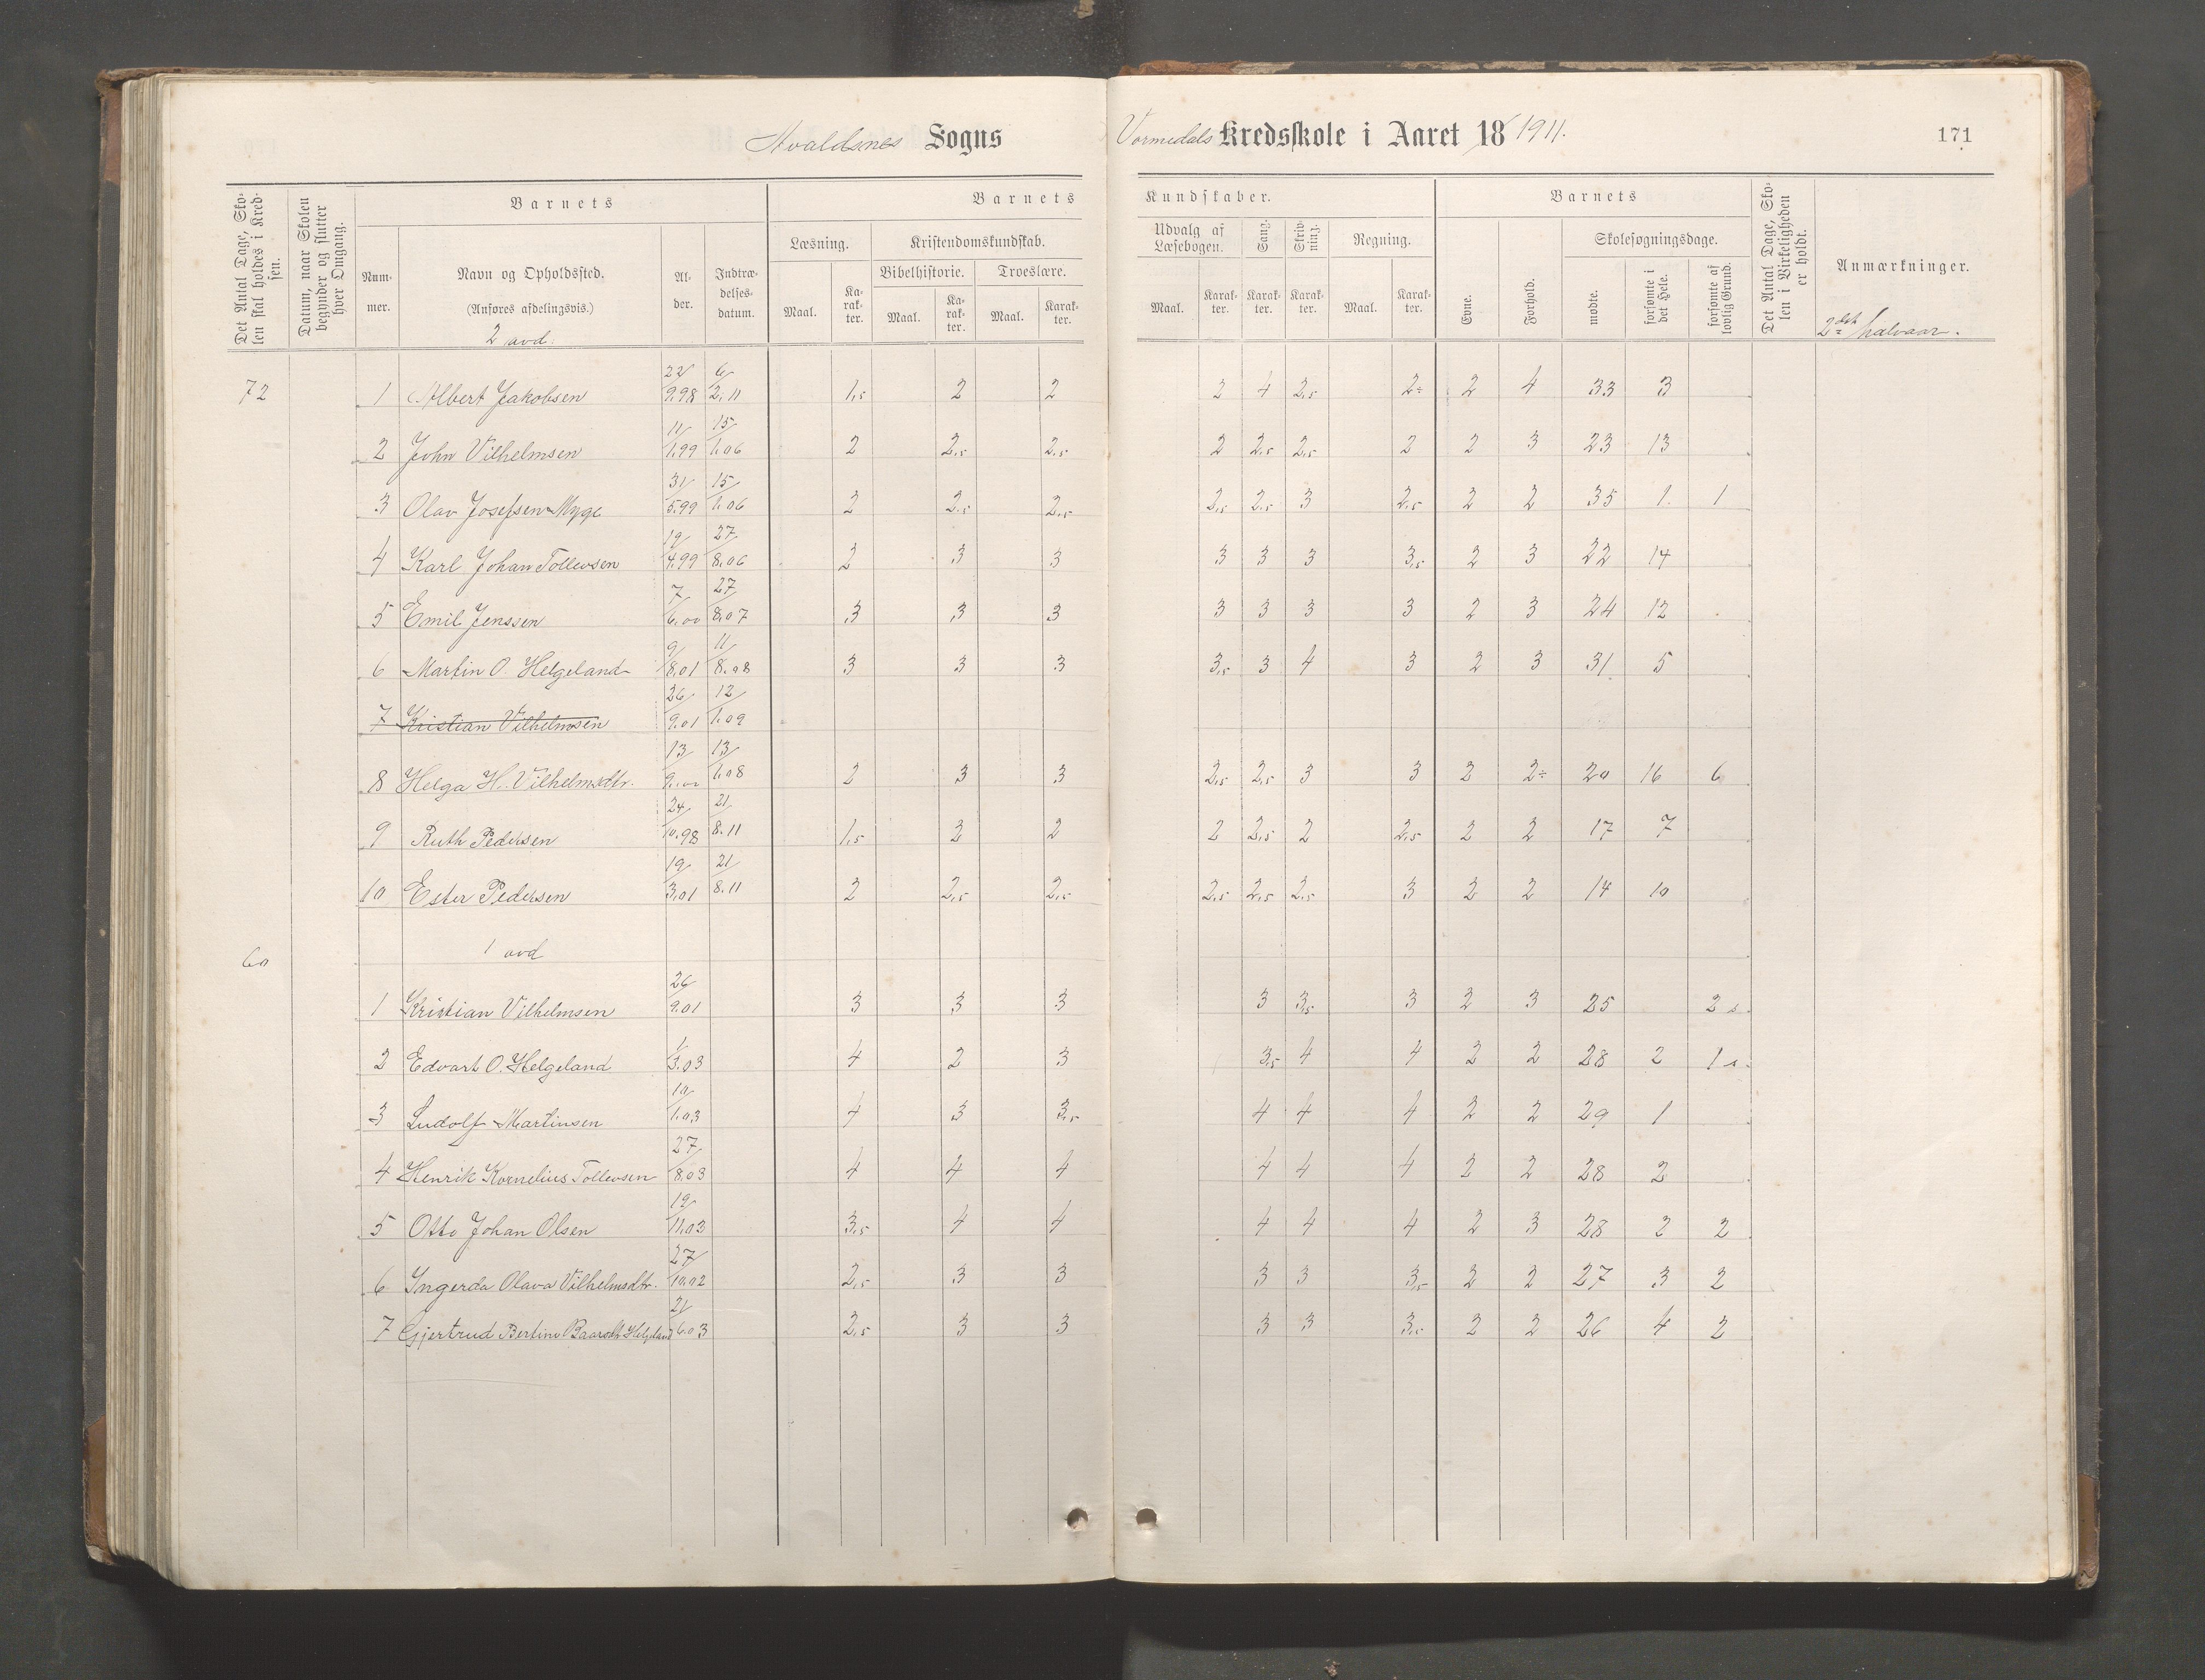 Avaldsnes Sogns
Vormedals Kredsskole i Aaret 18 1911.
171
Det Antal Dage, Skolen skal holdes i Kredsen.
Datum, naar Skolen begynder og slutter hver Omgang.
Barnets
Nummer.
Navn og Opholdssted.
(Anføres afdelingsvis.)
Alder.
Indtrædelsesdatum.
Barnets
Læsning.
Maal.
Karakter.
Kristendomskundskab.
Bibelhistorie.
Maal.
Karakter.
Troeslære.
Maal.
Karakter.
Kundskaber.
Udvalg af Læsebogen.
Maal.
Karakter.
Sang.
Karakter.
Skrivning.
Karakter.
Regning.
Maal.
Karakter.
Barnets
Evne.
Forhold.
Skolesøgningsdage.
mødte.
forsømte i det Hele.
forsømte af lovlig Grund.
Det Antal Dage, Skolen i Virkeligheden er holdt.
Anmærkninger.
2det halvaar.
2 avd.
72 1 Albert Jakobsen 22/9.98 6/2.11 1,5 2 2 2 4 2,5 2÷ 2 4 33 3
2 John Vilhelmsen 11/1.99 15/1.06 2 2,5 2,5 2 2,5 2,5 2 2 3 23 13
3 Olav Josefsen Myge 31/5.99 15/1.06 2 2,5 2,5 2,5 2,5 3 2,5 2 2 35 1 1
4 Karl Johan Tollevsen 19/4.99 27/8.06 2 3 3 3 3 3 3,5 2 3 22 14
5 Emil Jenssen 7/6.00 27/8.07 3 3 3 3 3 3 3 2 3 24 12
6 Martin O. Helgeland 9/8.01 11/8.08 3 3 3 3,5 3 4 3 2 3 31 5
7 Kristian Vilhelmsen 26/9.01 12/1.09
8 Helga H. Vilhelmsdtr. 13/9.00 13/1.08 2 3 3 2,5 2,5 3 3 2 2÷ 20 16 6
9 Ruth Pedersen 24/10.98 21/8.11 1,5 2 2 2 2,5 2 2,5 2 2 17 7
10 Ester Pedersen 19/3.01 21/8.11 2 2,5 2,5 2,5 2,5 2,5 3 2 2 14 10
60 1 avd
1 Kristian Vilhelmsen 26/9.01 3 3 3 3 3,5 3 2 3 25 2 s.
2 Edvart O. Helgeland 1/3.03 4 2 3 3,5 4 4 2 2 28 2 1 s.
3 Ludolf Martinsen 10/1.03 4 3 3,5 4 4 4 2 2 29 1
4 Henrik Kornelius Tollevsen 27/8.03 4 4 4 4 4 4 2 2 28 2
5 Otto Johan Olsen 19/11.03 3,5 4 4 4 4 4 2 3 28 2 2
6 Ingerda Olava Vilhelmsdtr. 27/10.02 2,5 3 3 3 3 3,5 2 2 27 3 2
7 Gjertrud Bertine Helgeland 21/6.03 2,5 3 3 3 3 3,5 2 2 26 4 2